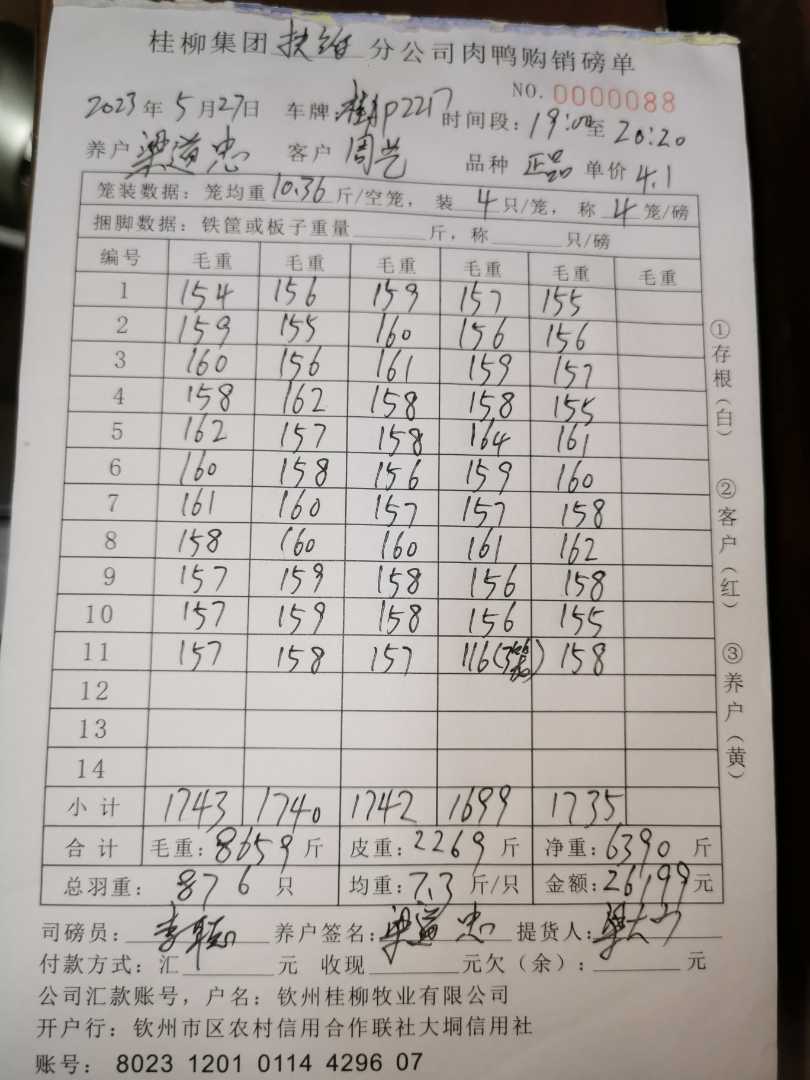 桂柳集团扶绥分公司肉鸭购销磅单
NO.0000088
2023年5月27日 车牌:桂P2217 时间段:19:00至20:20
养户梁道忠 客户周艺 品种正品单价4.1
笼装数据:笼均重10.36斤/空笼,装4只/笼,称4笼/磅
捆脚数据:铁筐或板子重量 斤,称 只/磅
编号 毛重 毛重 毛重 毛重 毛重 毛重
1 154 156 159 157 155
2 159 155 160 156 156
3 160 156 161 159 157
4 158 162 158 158 155
5 162 157 158 164 161
6 160 158 156 159 160
7 161 160 157 157 158
8 158 160 160 161 162
9 157 159 158 156 158
10 157 159 158 156 155
11 157 158 157 116(3 ) 158
12
13
14
小计 1743 1740 1742 1699 1735
合计 毛重:8659斤 皮重:2269斤 净重:6390斤
总羽重: 876只 均重:7.3斤/只 金额:26199元
司磅员: 养户签名:梁道忠 提货人:
付款方式:汇 元 收现 元欠(余): 元
公司汇款账号,户名:钦州桂柳牧业有限公司
开户行:钦州市区农村信用合作联社大垌信用社
账号:8023 1201 0114 4296 07
①存根(白)
②客户(红)
③养户(黄)